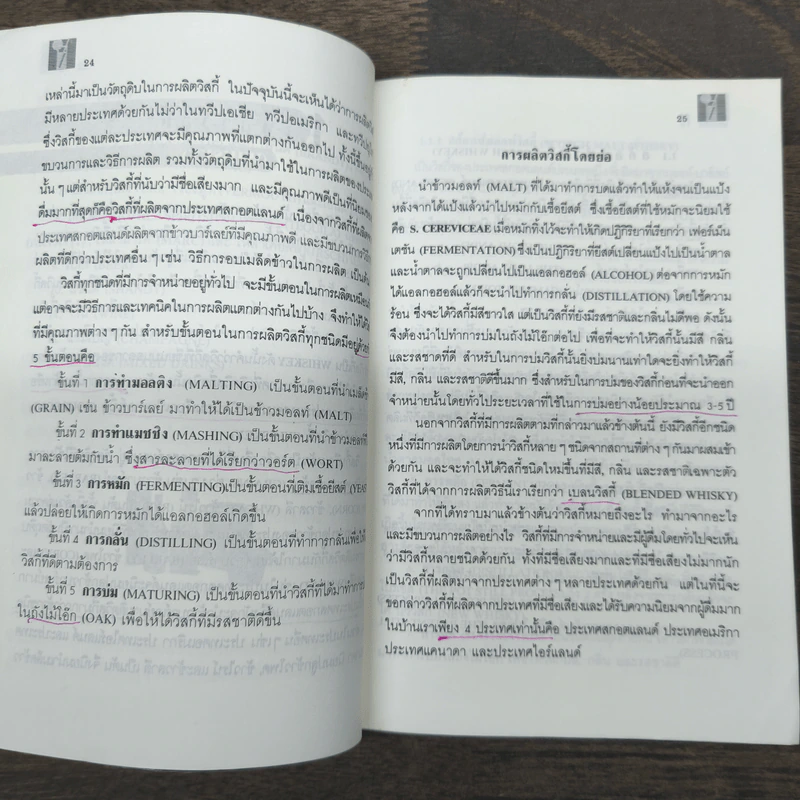 24
เหล่านี้มาเป็นวัตถุดิบในการผลิตวิสกี้ ในปัจจุบันนี้จะเห็นได้ว่าการผลิต
มีหลายประเทศด้วยกันไม่ว่าในทวีปเอเซีย ทวีปอเมริกา และทวีป
ซึ่งวิสกี้ของแต่ละประเทศจะมีคุณภาพที่แตกต่างกันออกไป ทั้งนี้ขึ้น
ขบวนการและวิธีการผลิต รวมทั้งวัตถุดิบที่นำมาใช้ในการผลิตของประเทศ
นั้น ๆ แต่สำหรับวิสกี้ที่นับว่ามีชื่อเสียงมาก และมีคุณภาพดีเป็นที่นิยม
ดื่มมากที่สุดก็คือวิสกี้ที่ผลิตจากประเทศสกอตแลนด์ เนื่องจากวิสกี้ที่ผลิต
ประเทศสกอตแลนด์ผลิตจากข้าวบาร์เลย์ที่มีคุณภาพดี และมีขบวนการ
ผลิตที่ดีกว่าประเทศอื่น ๆ เช่น วิธีการอบเมล็ดข้าวในการผลิต เป็นต้น
วิสกี้ทุกชนิดที่มีการจำหน่ายอยู่ทั่วไป จะมีขั้นตอนในการผลิตเหมือน
แต่อาจจะมีวิธีการและเทคนิคในการผลิตแตกต่างกันไปบ้าง จึงทำให้
ที่มีคุณภาพต่าง ๆ กัน สำหรับขั้นตอนในการผลิตวิสกี้ทุกชนิดมีอยู่ด้วย
5 ขั้นตอนคือ
ขั้นที่ 1 การทำมอลติง (MALTING) เป็นขั้นตอนที่นำเมล็ด
(GRAIN) เช่น ข้าวบาร์เลย์ มาทำให้ได้เป็นข้าวมอลท์ (MALT)
ขั้นที่ 2 การทำแมชชิง (MASHING) เป็นขั้นตอนที่นำข้าวมอลท์
มาละลายต้มกับน้ำ ซึ่งสารละลายที่ได้เรียกว่าวอร์ต (WORT)
ขั้นที่ 3 การหมัก (FERMENTING)เป็นขั้นตอนที่เติมเชื้อยีสต์
แล้วปล่อยให้เกิดการหมักได้แอลกอฮอล์เกิดขึ้น
ขั้นที่ 4 การกลั่น (DISTILLING) เป็นขั้นตอนที่ทำการกลั่นเพื่อ
วิสกี้ที่ดีตามต้องการ
ขั้นที่ 5 การบ่ม (MATURING) เป็นขั้นตอนที่นำวิสกี้ที่ได้มาทำการ
ในถังไม้โอ๊ก (OAK) เพื่อให้ได้วิสกี้ที่มีรสชาติดีขึ้น
25
การผลิตวิสกี้โดยย่อ
นำข้าวมอลท์ (MALT) ที่ได้มาทำการบดแล้วทำให้แห้งจนเป็นแป้ง
หลังจากได้แป้งแล้วนำไปหมักกับเชื้อยีสต์ ซึ่งเชื้อยีสต์ที่ใช้หมักจะนิยมใช้
คือ S. CEREVICEAE เมื่อหมักทิ้งไว้จะทำให้เกิดปฏิกิริยาที่เรียกว่า เฟอร์เม้น
เตชัน (FERMENTATION) ซึ่งเป็นปฏิกิริยาที่ยีสต์เปลี่ยนแป้งไปเป็นน้ำตาล
และน้ำตาลจะถูกเปลี่ยนไปเป็นแอลกอฮอล์ (ALCOHOL) ต่อจากการหมัก
ได้แอลกอฮอล์แล้วก็จะนำไปทำการกลั่น (DISTILLATION) โดยใช้ความ
ร้อน ซึ่งจะได้วิสกี้มีสีขาวใส แต่เป็นวิสกี้ที่ยังมีรสชาติและกลิ่นไม่ดีพอ ดังนั้น
จึงต้องนำไปทำการบ่มในถังไม้โอ๊กต่อไป เพื่อที่จะทำให้วิสกี้นั้นมีสี กลิ่น
และรสชาติที่ดี สำหรับในการบ่มวิสกี้นั้นยิ่งบ่มนานเท่าใดจะยิ่งทำให้วิสกี้
มีสี, กลิ่น และรสชาติดีขึ้นมาก ซึ่งสำหรับในการบ่มของวิสกี้ก่อนที่จะนำออก
จำหน่ายนั้นโดยทั่วไประยะเวลาที่ใช้ในการบ่มอย่างน้อยประมาณ 3-5 ปี
นอกจากวิสกี้ที่มีการผลิตตามที่กล่าวมาแล้วข้างต้นนี้ ยังมีวิสกี้อีกชนิด
หนึ่งที่มีการผลิตโดยการนำวิสกี้หลาย ๆ ชนิดจากสถานที่ต่าง ๆ กันมาผสมเข้า
ด้วยกัน และจะทำให้ได้วิสกี้ชนิดใหม่ขึ้นที่มีสี, กลิ่น และรสชาติเฉพาะตัว
วิสกี้ที่ได้จากการผลิตวิธีนี้เราเรียกว่า เบลนวิสกี้ (BLENDED WHISKY)
จากที่ได้ทราบมาแล้วข้างต้นว่าวิสกี้หมายถึงอะไร ทำมาจากอะไร
และมีขบวนการผลิตอย่างไร วิสกี้ที่มีการจำหน่ายและมีผู้ดื่มโดยทั่วไปจะเห็น
ว่ามีวิสกี้หลายชนิดด้วยกัน ทั้งที่มีชื่อเสียงมากและที่มีชื่อเสียงไม่มากนัก
เป็นวิสกี้ที่ผลิตมาจากประเทศต่าง ๆ หลายประเทศด้วยกัน แต่ในที่นี้จะ
ขอกล่าววิสกี้ที่ผลิตจากประเทศที่มีชื่อเสียงและได้รับความนิยมจากผู้ดื่มมาก
ในบ้านเราเพียง 4 ประเทศเท่านั้นคือ ประเทศสกอตแลนด์ ประเทศอเมริกา
ประเทศแคนาดา และประเทศไอร์แลนด์